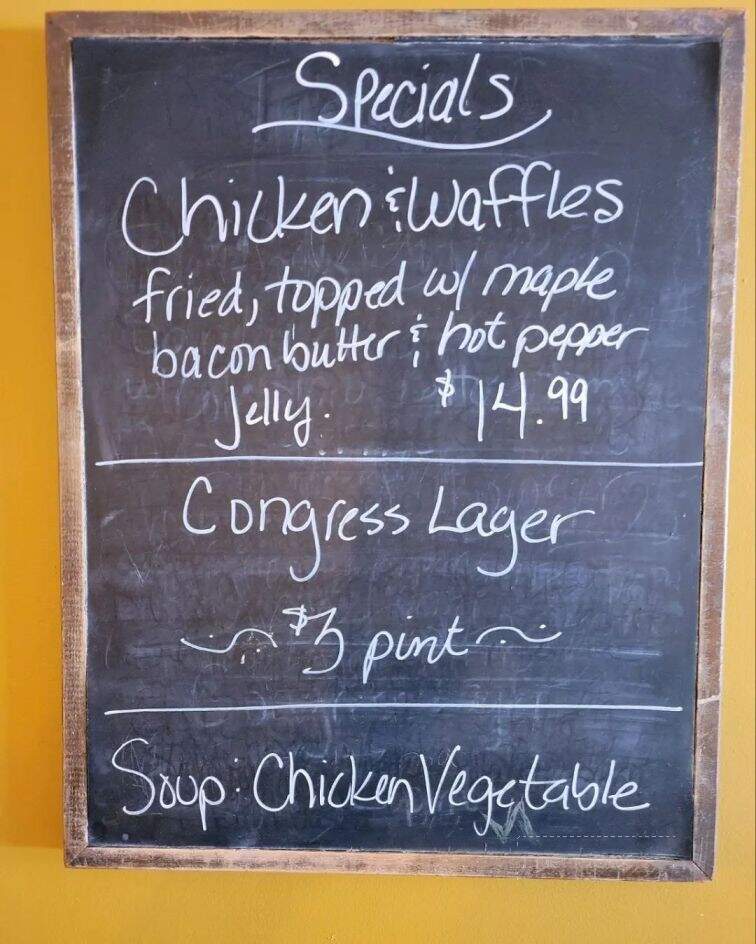 Specials
Chicken & Waffles
fried, topped w/ maple
bacon butter & hot pepper
Jelly. $14.99
Congress Lager
~ $3 pint ~
Soup: Chicken Vegetable